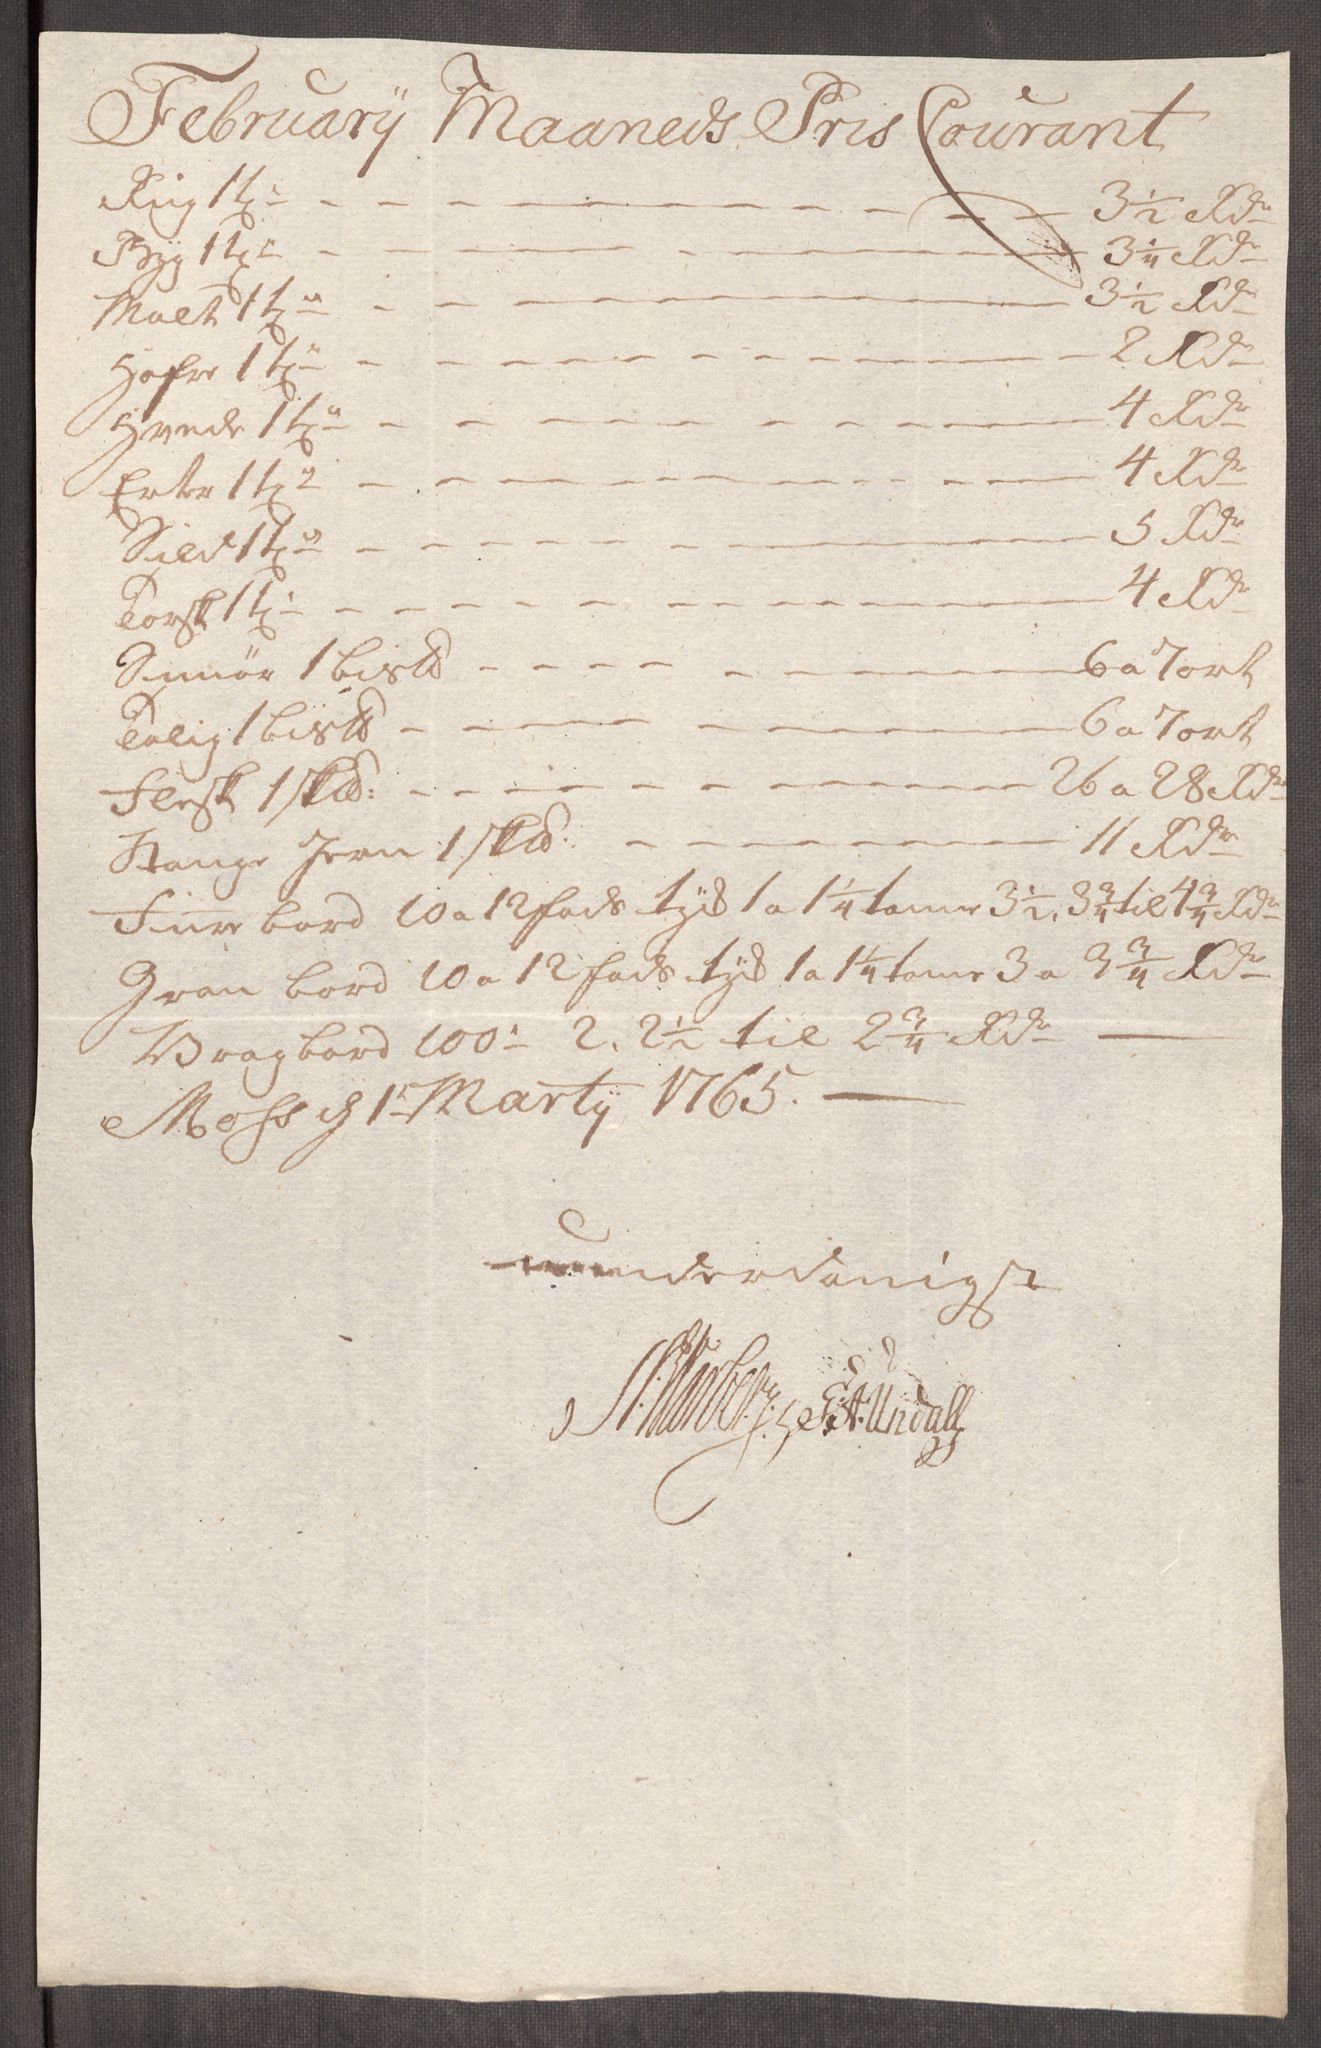 Februarÿ Maaneds Pris Courant
Rug 1 tx: 3½ Rdr
Byg 1 tx: 3¼ Rdr
Malt 1 tx: 3½ Rdr
Hafre 1 tx: 2 Rdr
Hvede 1 tx: 4 Rdr
Erter 1 tx: 4 Rdr
Sild 1 tx: 5 Rdr
Torsk 1 tx: 4 Rdr
Smiör 1 bis℔ 6 a 7 ort
Talig 1 bis℔ 6 a 7 ort
Flesk 1 sk℔: 26 a 28 Rdr
Stange Jern 1 sk℔: 11 Rdr
Furre bord 10 a 12 fods tÿk 1 a 1¼ tomme 3½, 3¾ til 4¾ Rdr
Gran bord 10 a 12 fods tÿk 1 a 1¼ tomme 3 a 3¾ Rdr
Vragbord 100: 2, 2½ til 2¾ Rdr
Moss d 1: Martÿ 1765.
underdanigst
E:A:Undall